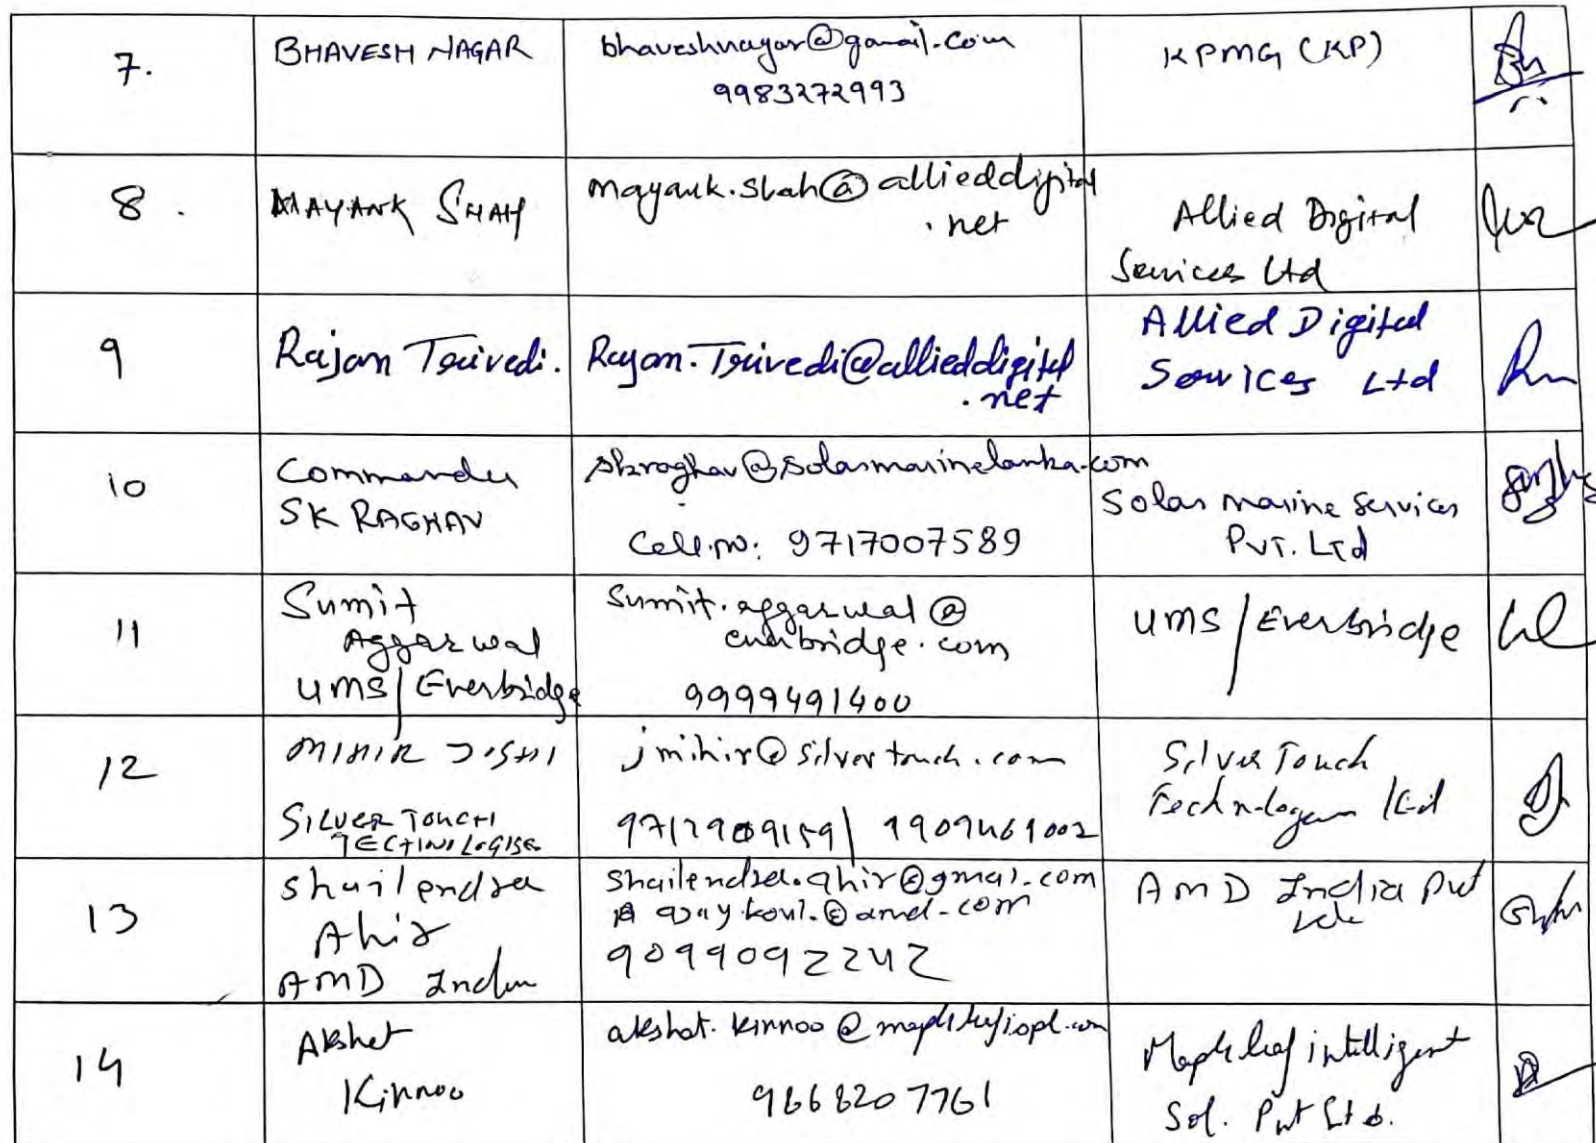 7.
BHAVESH NAGAR
bhaveshnagar@gamail.com
9983272993
KPMG (KP)
8.
MAYANK SHAH
mayank.shah@allieddigital
.net
Allied Digital
Services Ltd
9
Rajan Trivedi.
Rajan.Trivedi@allieddigital
.net
Allied Digital
Services Ltd
10
Commander
SK RAGHAV
skraghav@solarmarinelanka.com
Cell.no: 9717007589
Solar marine services
PVT. LTd
11
Sumit
Aggarwal
UMS/Everbridge
Sumit.aggarwal@
everbridge.com
9999491400
UMS/Everbridge
12
MIHIR JOSHI
SILVER TOUCH
jmihir@silvertouch.com
Silver Touch
Ltd
13
Shailendra
Ahir
AMD India
Shailendra.ahir@gmai.com
9099092242
AMD India Pvt
14
Akshat
Kinnoo
akshat.kinnoo@
Maple leaf intelligent
Sol. Pvt Ltd.